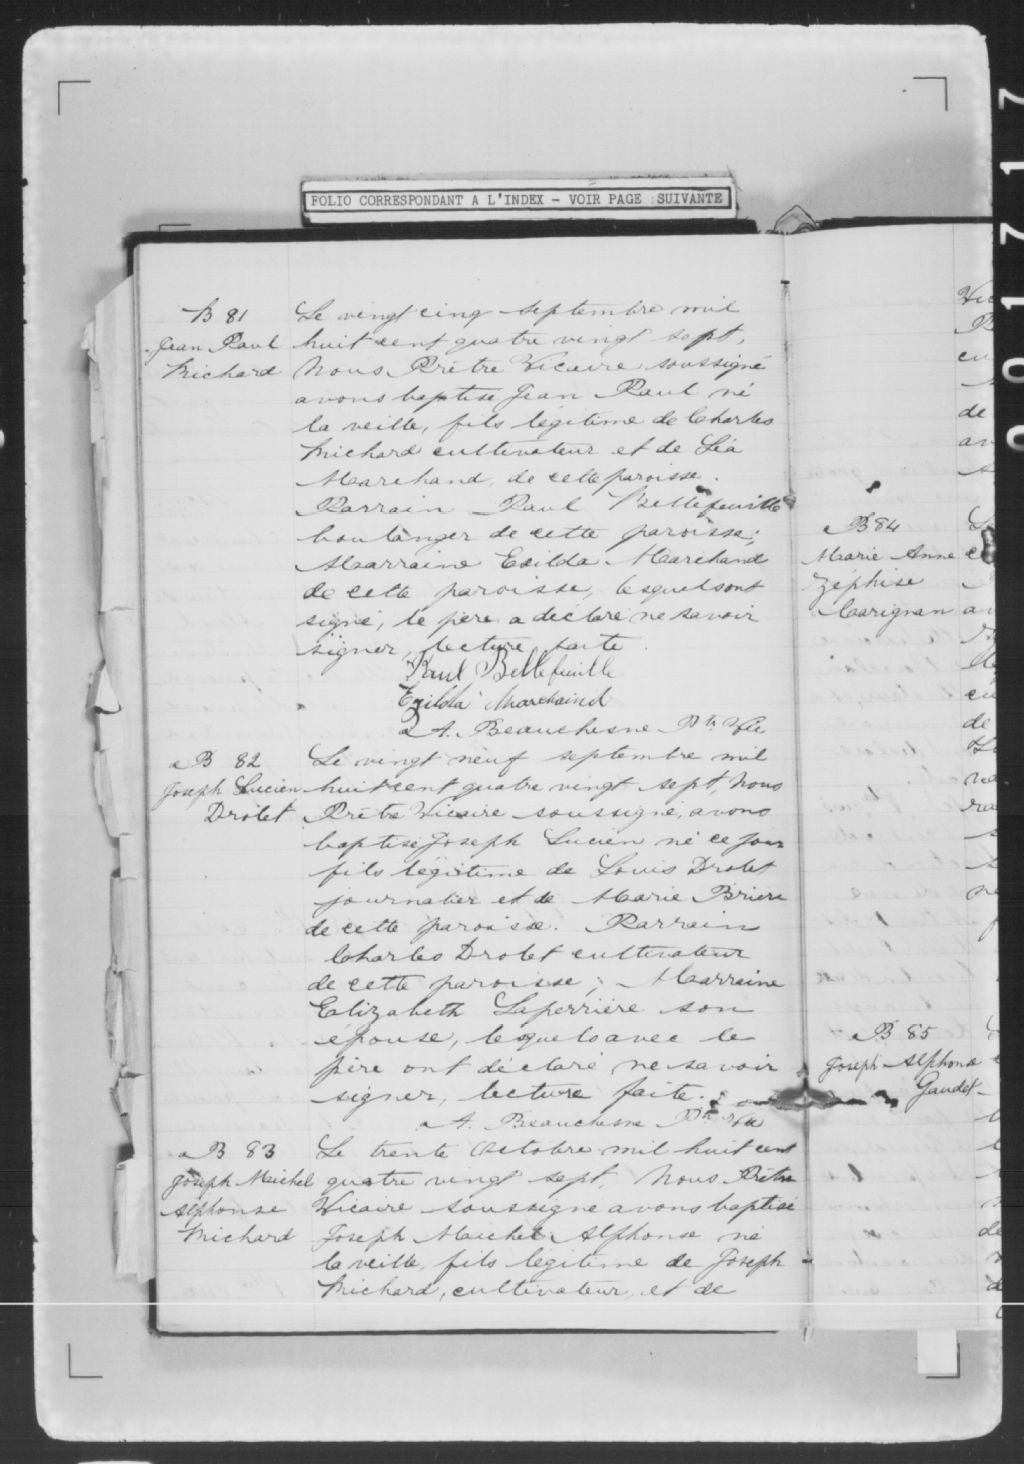 FOLIO CORRESPONDANT A L'INDEX - VOIR PAGE SUIVANTE
B 81
Jean Paul
Trichard
Le vingt cinq septembre mil
huit cent quatre vingt sept,
Nous Prêtre Vicaire soussigné
avons baptisé Jean Paul né
la veille, fils légitime de Charles
Trichard cultivateur et de Léa
Marchand, de cette paroisse.
Parrain Paul Bellefeuille
boulanger de cette paroisse;
Marraine Exilda Marchand
de cette paroisse, lesquels ont
signé, le père a déclaré ne savoir
signer, lecture faite.
Paul Bellefeuille
Exilda Marchand
A. Beauchesne Ptre Vic
B 82
Joseph Lucien
Drolet
Le vingt neuf septembre mil
huit cent quatre vingt sept, Nous
Prêtre Vicaire soussigné, avons
baptisé Joseph Lucien né ce jour
fils légitime de Louis Drolet
journalier et de Marie Brière
de cette paroisse. Parrain
Charles Drolet cultivateur
de cette paroisse; Marraine
Elizabeth Laperrière son
épouse, lesquels avec le
père ont déclaré ne savoir
signer, lecture faite.
A. Beauchesne Ptre Vic
B 83
Joseph Maichel
Alphonse
Trichard
Le trente Octobre mil huit cent
quatre vingt sept, Nous Prêtre
Vicaire soussigné avons baptisé
Joseph Maichel Alphonse né
la veille, fils légitime de Joseph
Trichard, cultivateur, et de
B 84
Marie Anne
Zéphise
Carignan
B 85
Joseph Alphonse
Gaudet
01717